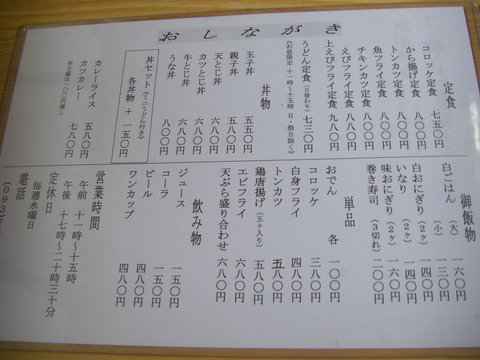 おしながき
定食
コロッケ定食 七五〇円
から揚げ定食 八〇〇円
トンカツ定食 八〇〇円
魚フライ定食 八〇〇円
チキンカツ定食 八〇〇円
えびフライ定食 八〇〇円
上えびフライ定食 九八〇円
うどん定食（日替わり） 七三〇円
（お昼限定 十一時～十五時 日・祭日除く）
丼物
玉子丼 五五〇円
親子丼
天とじ丼
カツとじ丼
牛とじ丼
うな丼 八〇〇円
丼セット（ミニうどん付き）
各丼物 + 一五〇円
カレーライス 五八〇円
カツカレー 七八〇円
※大盛は一〇〇円増し
御飯物
白ごはん（大） 一六〇円
（小） 一三〇円
白おにぎり（2ヶ） 一四〇円
いなり（2ヶ） 一四〇円
味おにぎり（2ヶ） 一六〇円
巻き寿司（3切れ） 二〇〇円
単品
おでん 各 一〇〇円
コロッケ 三八〇円
白身フライ 四八〇円
トンカツ 五八〇円
鶏唐揚げ（五ヶ入り） 五八〇円
エビフライ 六八〇円
天ぷら盛り合わせ 六八〇円
飲み物
ジュース 一五〇円
コーラ 一五〇円
ビール 四八〇円
ワンカップ 四八〇円
営業時間
午前 十一時～十五時
午後 十七時～二十時三十分
定休日
毎週水曜日
電話